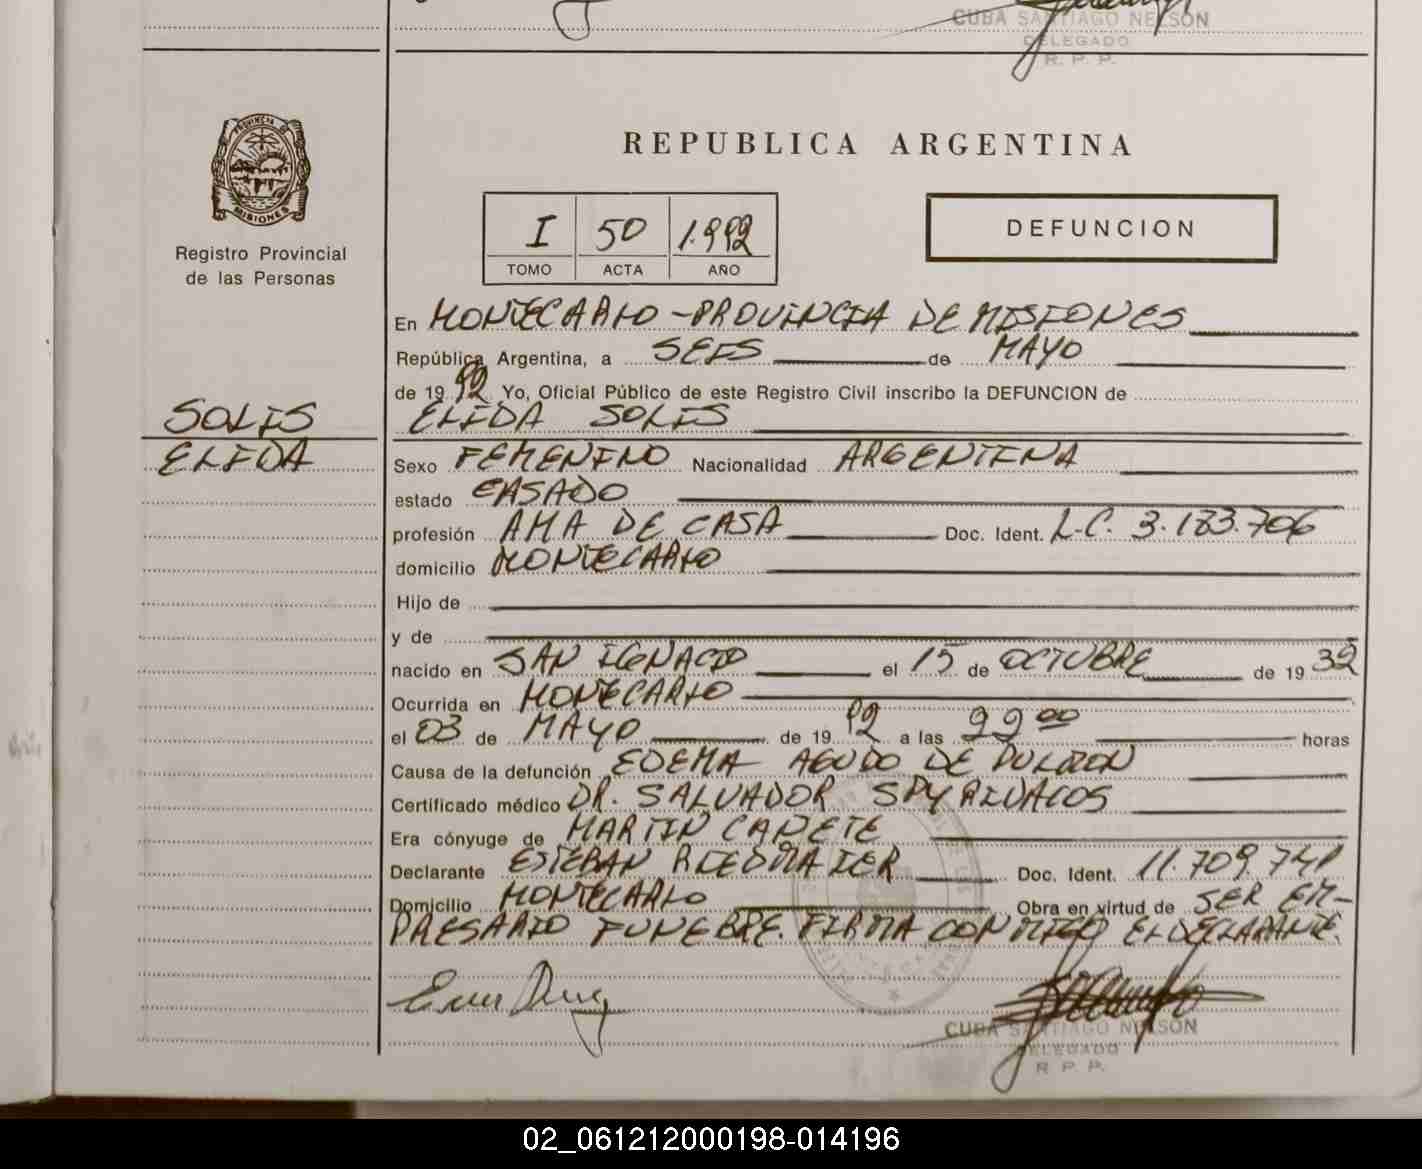 CUBA SANTIAGO NELSON
DELEGADO
R. P. P.
PROVINCIA DE
MISIONES
Registro Provincial
de las Personas
REPUBLICA ARGENTINA
I 50 1.992
TOMO ACTA AÑO
DEFUNCION
En MONTECARLO - PROVINCIA DE MISIONES
República Argentina, a SEIS de MAYO
de 19 92 Yo, Oficial Público de este Registro Civil inscribo la DEFUNCION de
SOLIS
ELIDA SOLIS
ELIDA
Sexo FEMENINO Nacionalidad ARGENTINA
estado CASADO
profesión AMA DE CASA Doc. Ident. L.C. 3.183.706
domicilio MONTECARLO
Hijo de
y de
nacido en SAN IGNACIO el 15 de OCTUBRE de 19 32
Ocurrida en MONTECARLO
el 03 de MAYO de 19 92 a las 22 00 horas
Causa de la defunción EDEMA AGUDO DE PULMON
Certificado médico DR. SALVADOR
Era cónyuge de MARTIN CAÑETE
Declarante ESTEBAN Doc. Ident. 11.709.741
Domicilio MONTECARLO Obra en virtud de SER EM-
PRESARIO FUNEBRE. FIRMA CONMIGO EL DECLARANTE.
CUBA SANTIAGO NELSON
DELEGADO
R. P. P.
02_061212000198-014196